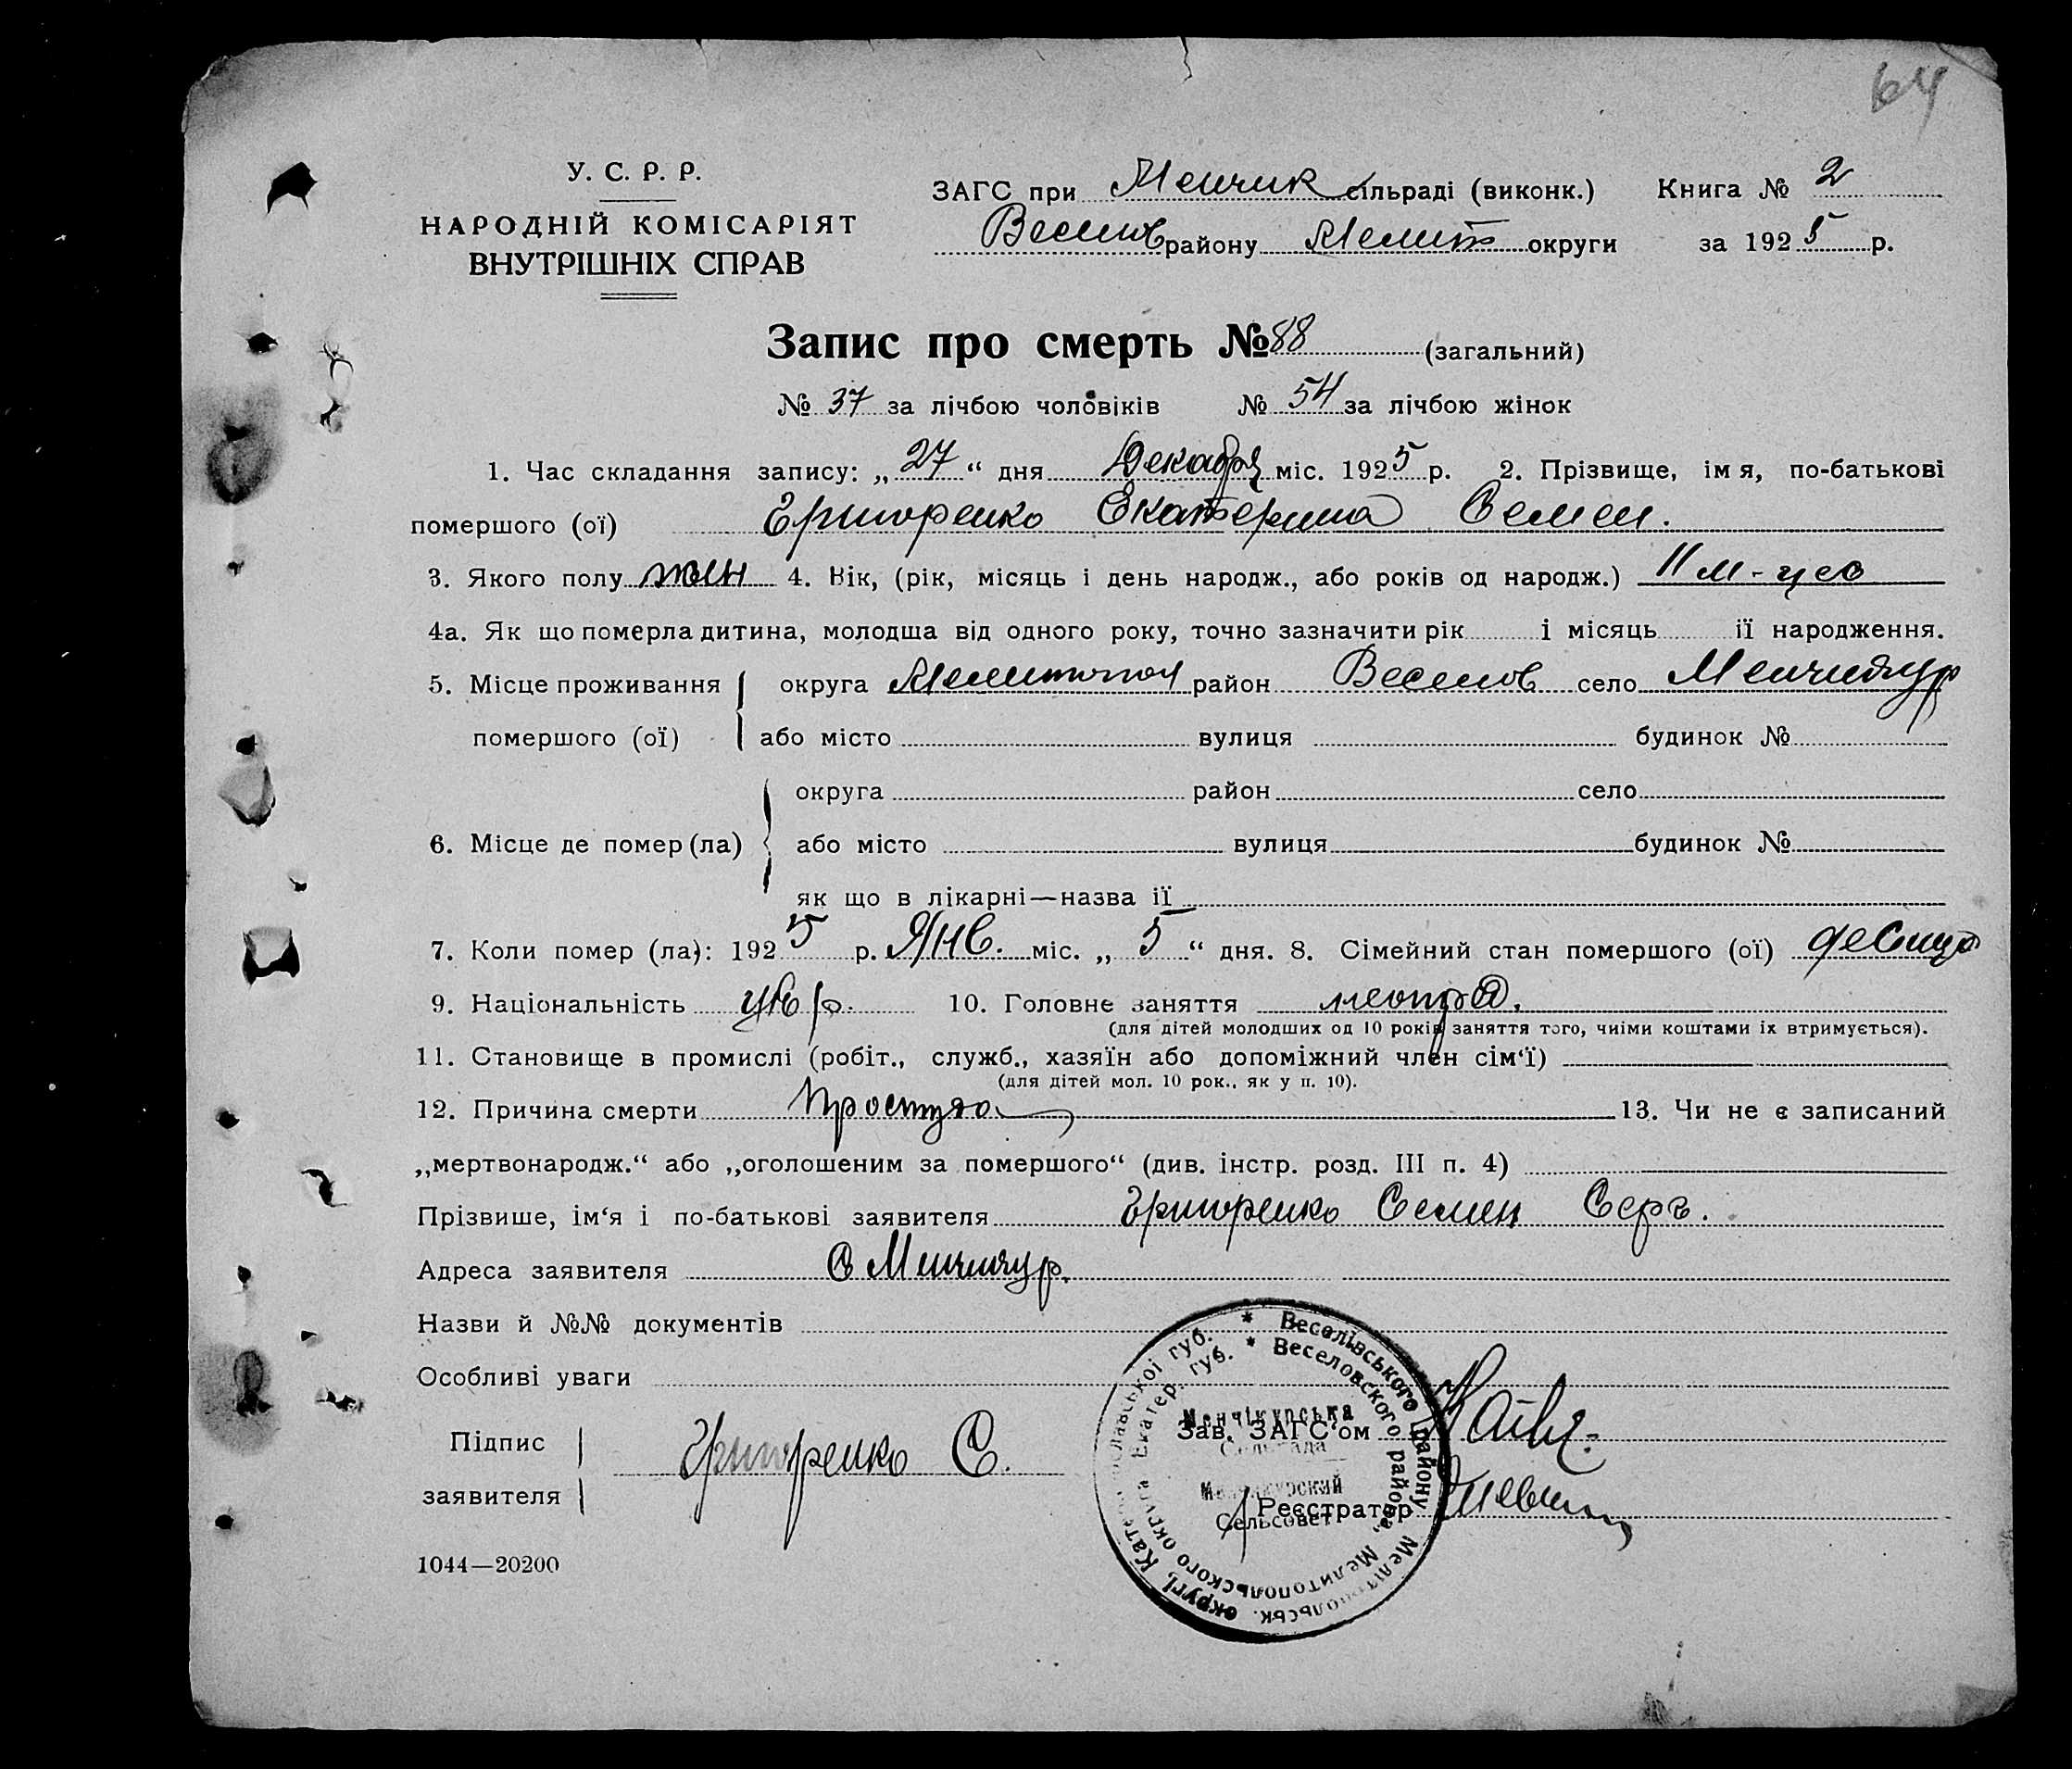 64
У. С. Р. Р.
НАРОДНІЙ КОМІСАРІЯТ
ВНУТРІШНІХ СПРАВ
ЗАГС при Менчик сільраді (виконк.) Книга № 2
Весилов району Мелит округи за 1925 р.
Запис про смерть № 88 (загальний)
№ 37 за лічбою чоловіків № 54 за лічбою жінок
1. Час складання запису: „27“ дня Декабря міс. 1925 р. 2. Прізвище, імя, по-батькові
помершого (ої) Григоренко Екатерина Семен.
3. Якого полу жен 4. Вік, (рік, місяць і день народж., або років од народж.) 11 м-цев
4а. Як що померла дитина, молодша від одного року, точно зазначити рік і місяць її народження.
5. Місце проживання округа Мелитопол район Веселов село Менчикур
помершого (ої) або місто вулиця будинок №
округа район село
6. Місце де помер (ла) або місто вулиця будинок №
як що в лікарні—назва її
7. Коли помер (ла): 1925 р. Янв. міс. „5“ дня. 8. Сімейний стан помершого (ої) девица
9. Національність укр. 10. Головне заняття
(для дітей молодших од 10 років заняття того, чиїми коштами їх втримується).
11. Становище в промислі (робіт., служб., хазяїн або допоміжний член сім‘ї)
(для дітей мол. 10 рок., як у п. 10).
12. Причина смерти Простуда 13. Чи не є записаний
„мертвонародж.“ або „оголошеним за помершого“ (див. інстр. розд. III п. 4)
Прізвише, ім‘я і по-батькові заявителя Григоренко Семен Серг.
Адреса заявителя С Менчикур.
Назви й №№ документів
Особливі уваги
Підпис
заявителя Григоренко С.
Зав. ЗАГС‘ом
Реєстратер
* Веселівського району Мелітопольськ. округи, Катеринославської губ.
* Веселовского района, Мелитопольского округа Екатер. губ.
Менчікурська
Сельрада
Менчикурский
Сельсовет
1044—20200